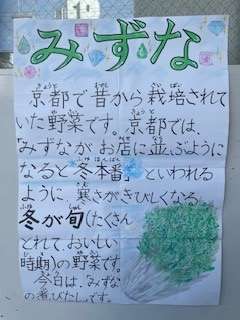 みずな
京都で昔から栽培されて
いた野菜です。京都では、
みずながお店に並ぶように
なると冬本番といわれる
ように寒さがきびしくなる
冬が旬(たくさん
とれて、おいしい
時期)の野菜です。
今日は、みずな
の煮びたしです。